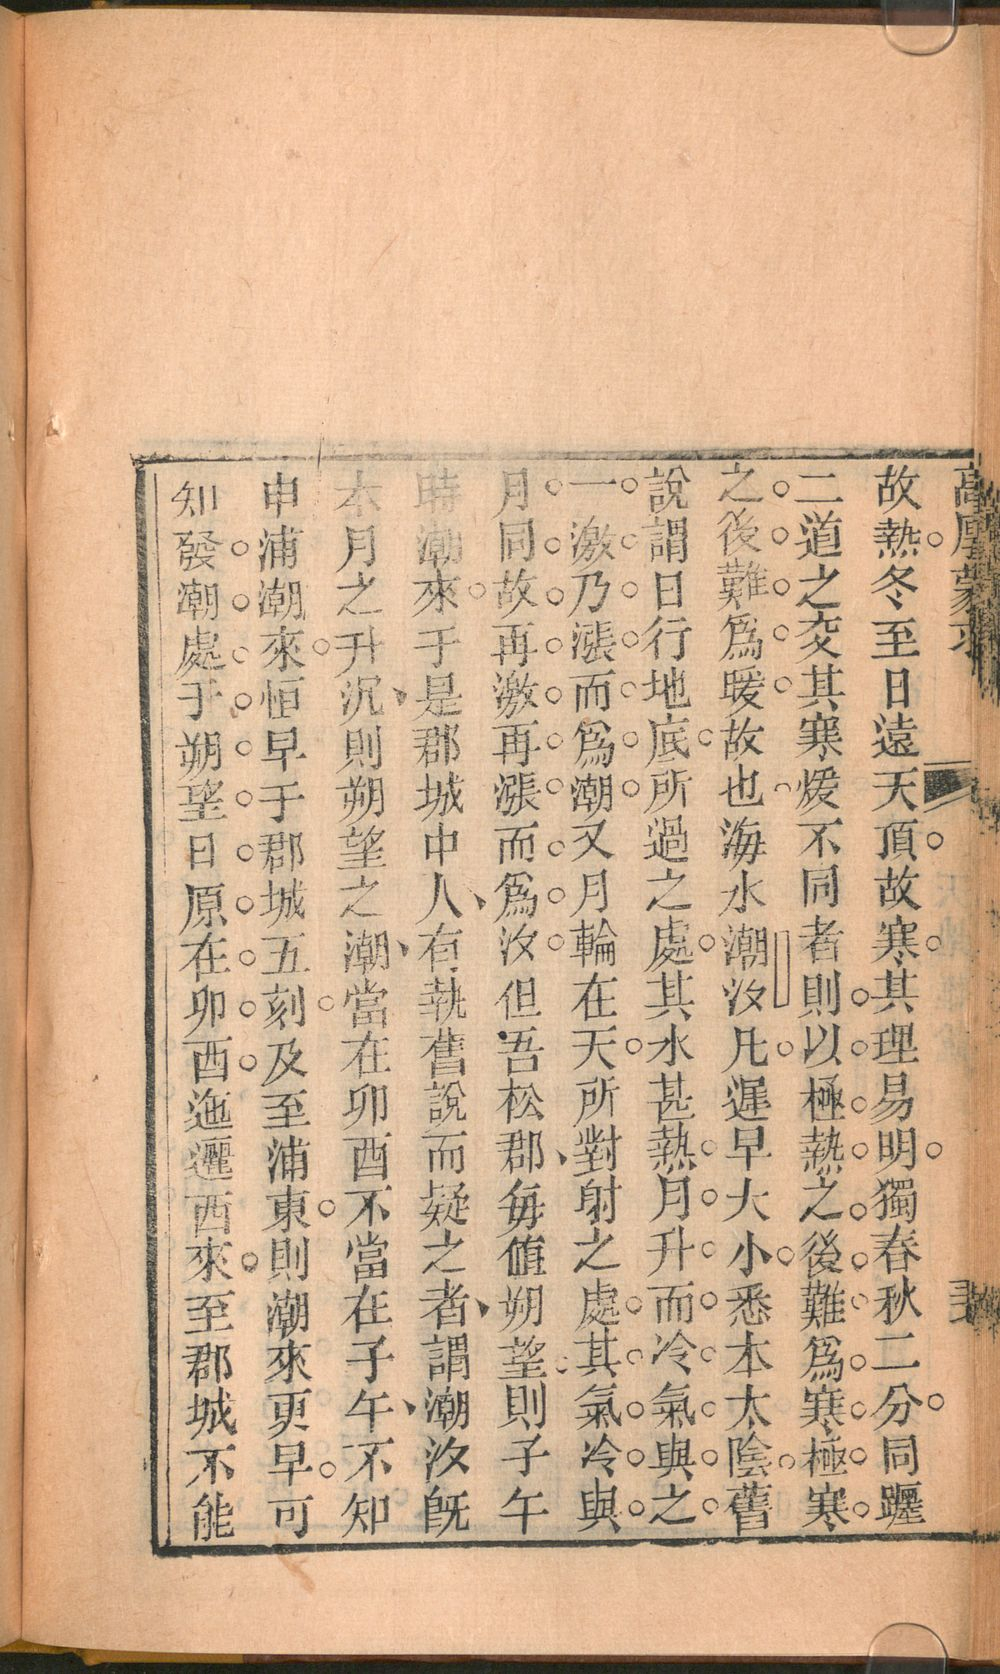 高厚蒙求
故熱冬至日遠天頂故寒其理易明獨春秋二分同躔
二道之交其寒煖不同者則以極熱之後難爲寒極寒
之後難爲暖故也海水潮汐凡遲早大小悉本太陰舊
說謂日行地底所過之處其水甚熱月升而冷氣與之
一激乃漲而爲潮又月輪在天所對射之處其氣冷與
月同故再激再漲而爲汐但吾松郡每值朔望則子午
時潮來于是郡城中人有執舊說而疑之者謂潮汐旣
本月之升沉則朔望之潮當在卯酉不當在子午不知
申浦潮來恒早于郡城五刻及至浦東則潮來更早可
知發潮處于朔望日原在卯酉迤邐西來至郡城不能